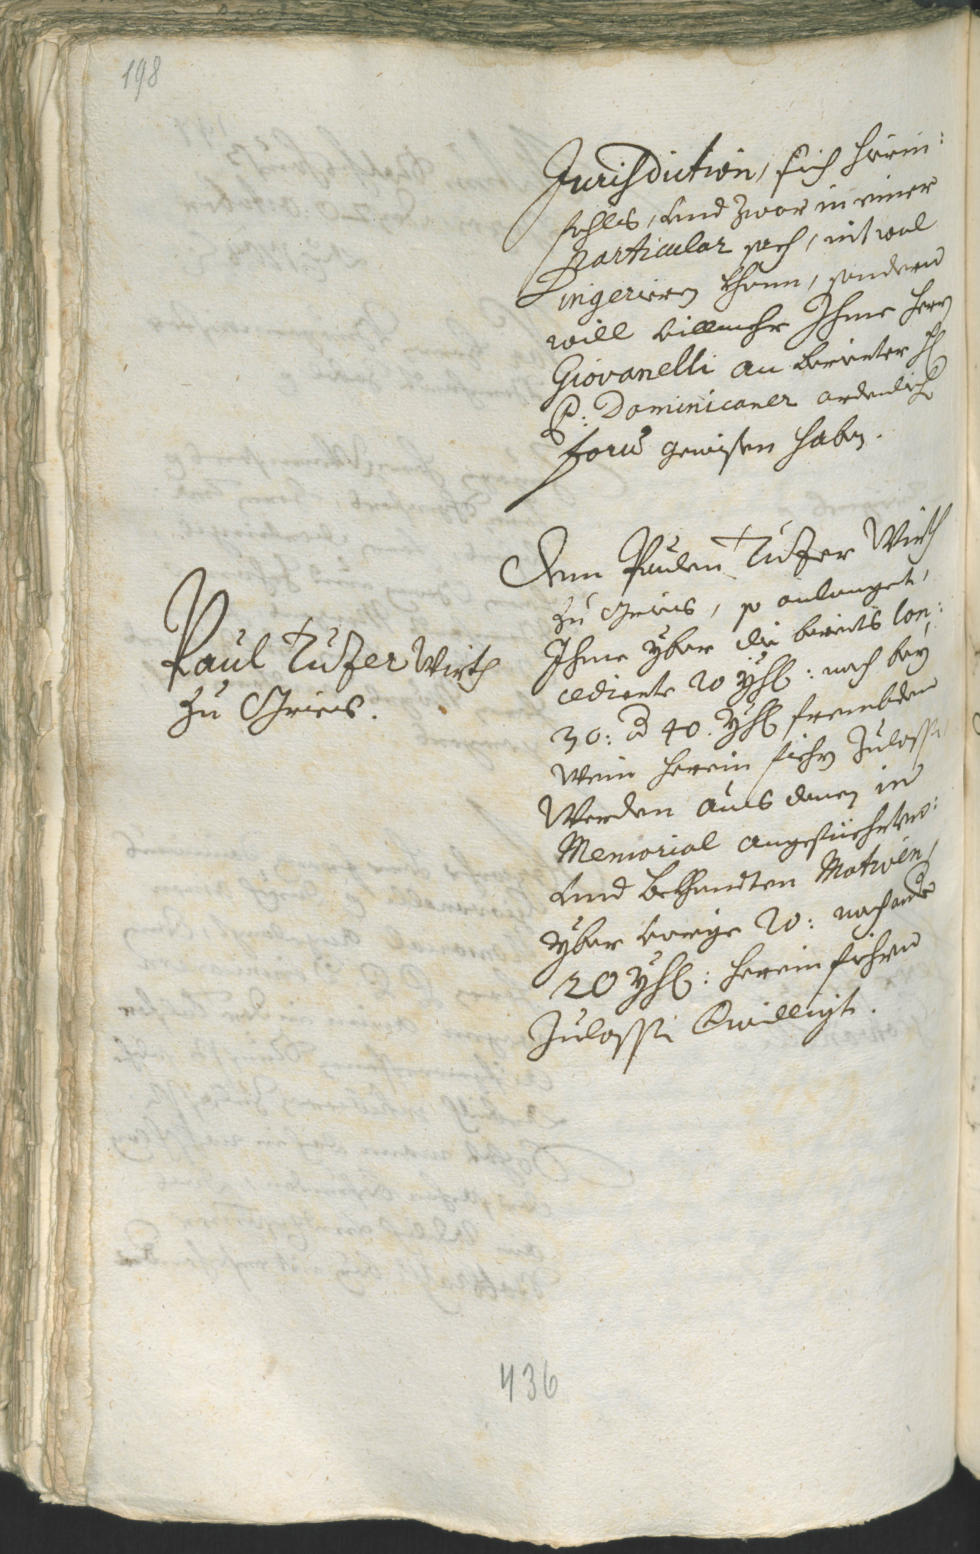 198
Jurisdiction, sich hierin:
fohls, und zwar in einer
particular sach, nit wol
ingeriern khönn, sondern
will vilmehr Ihme Herrn
Giovanelli an berierter H
P: Dominicaner ordenlich
foru gewisen haben.
Paul Tuzer Wirth
zu Gries.
Dem Paulen Tuzer Wirth
zu Gries, so anlanget,
Ihme yber die bereits con:
cedierte 20 Yhr: noch bey
30: 40. Yhr frembden
Wein herein fiehrn Zulassen
Werden aus denen in
Memorial angefüehrten:
und Motiven,
yber vorige 20: noch andere
20 Yhr: herein fiehren
Zulassen bwilligt.
436